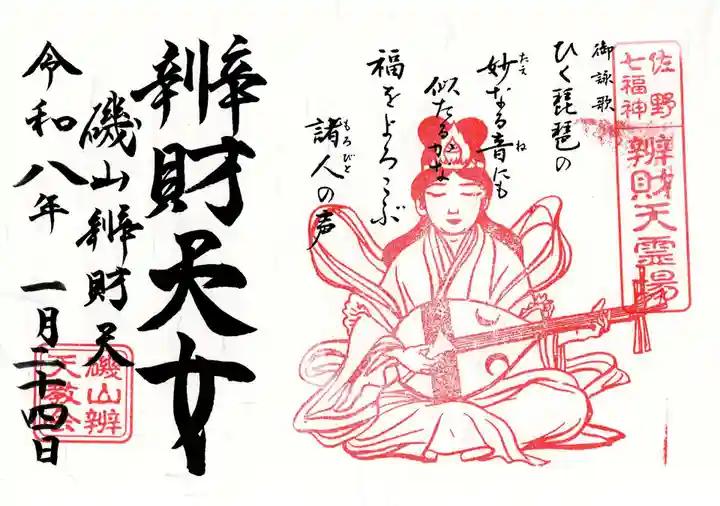 佐野七福神
辨財天霊場
御詠歌
ひく琵琶の
妙なる音にも
たえ
ね
似たるかな
福をよろこぶ
諸人の声
もろびと
辨財天女
磯山辨財天
令和八年 一月二十四日
磯山辨
天教会